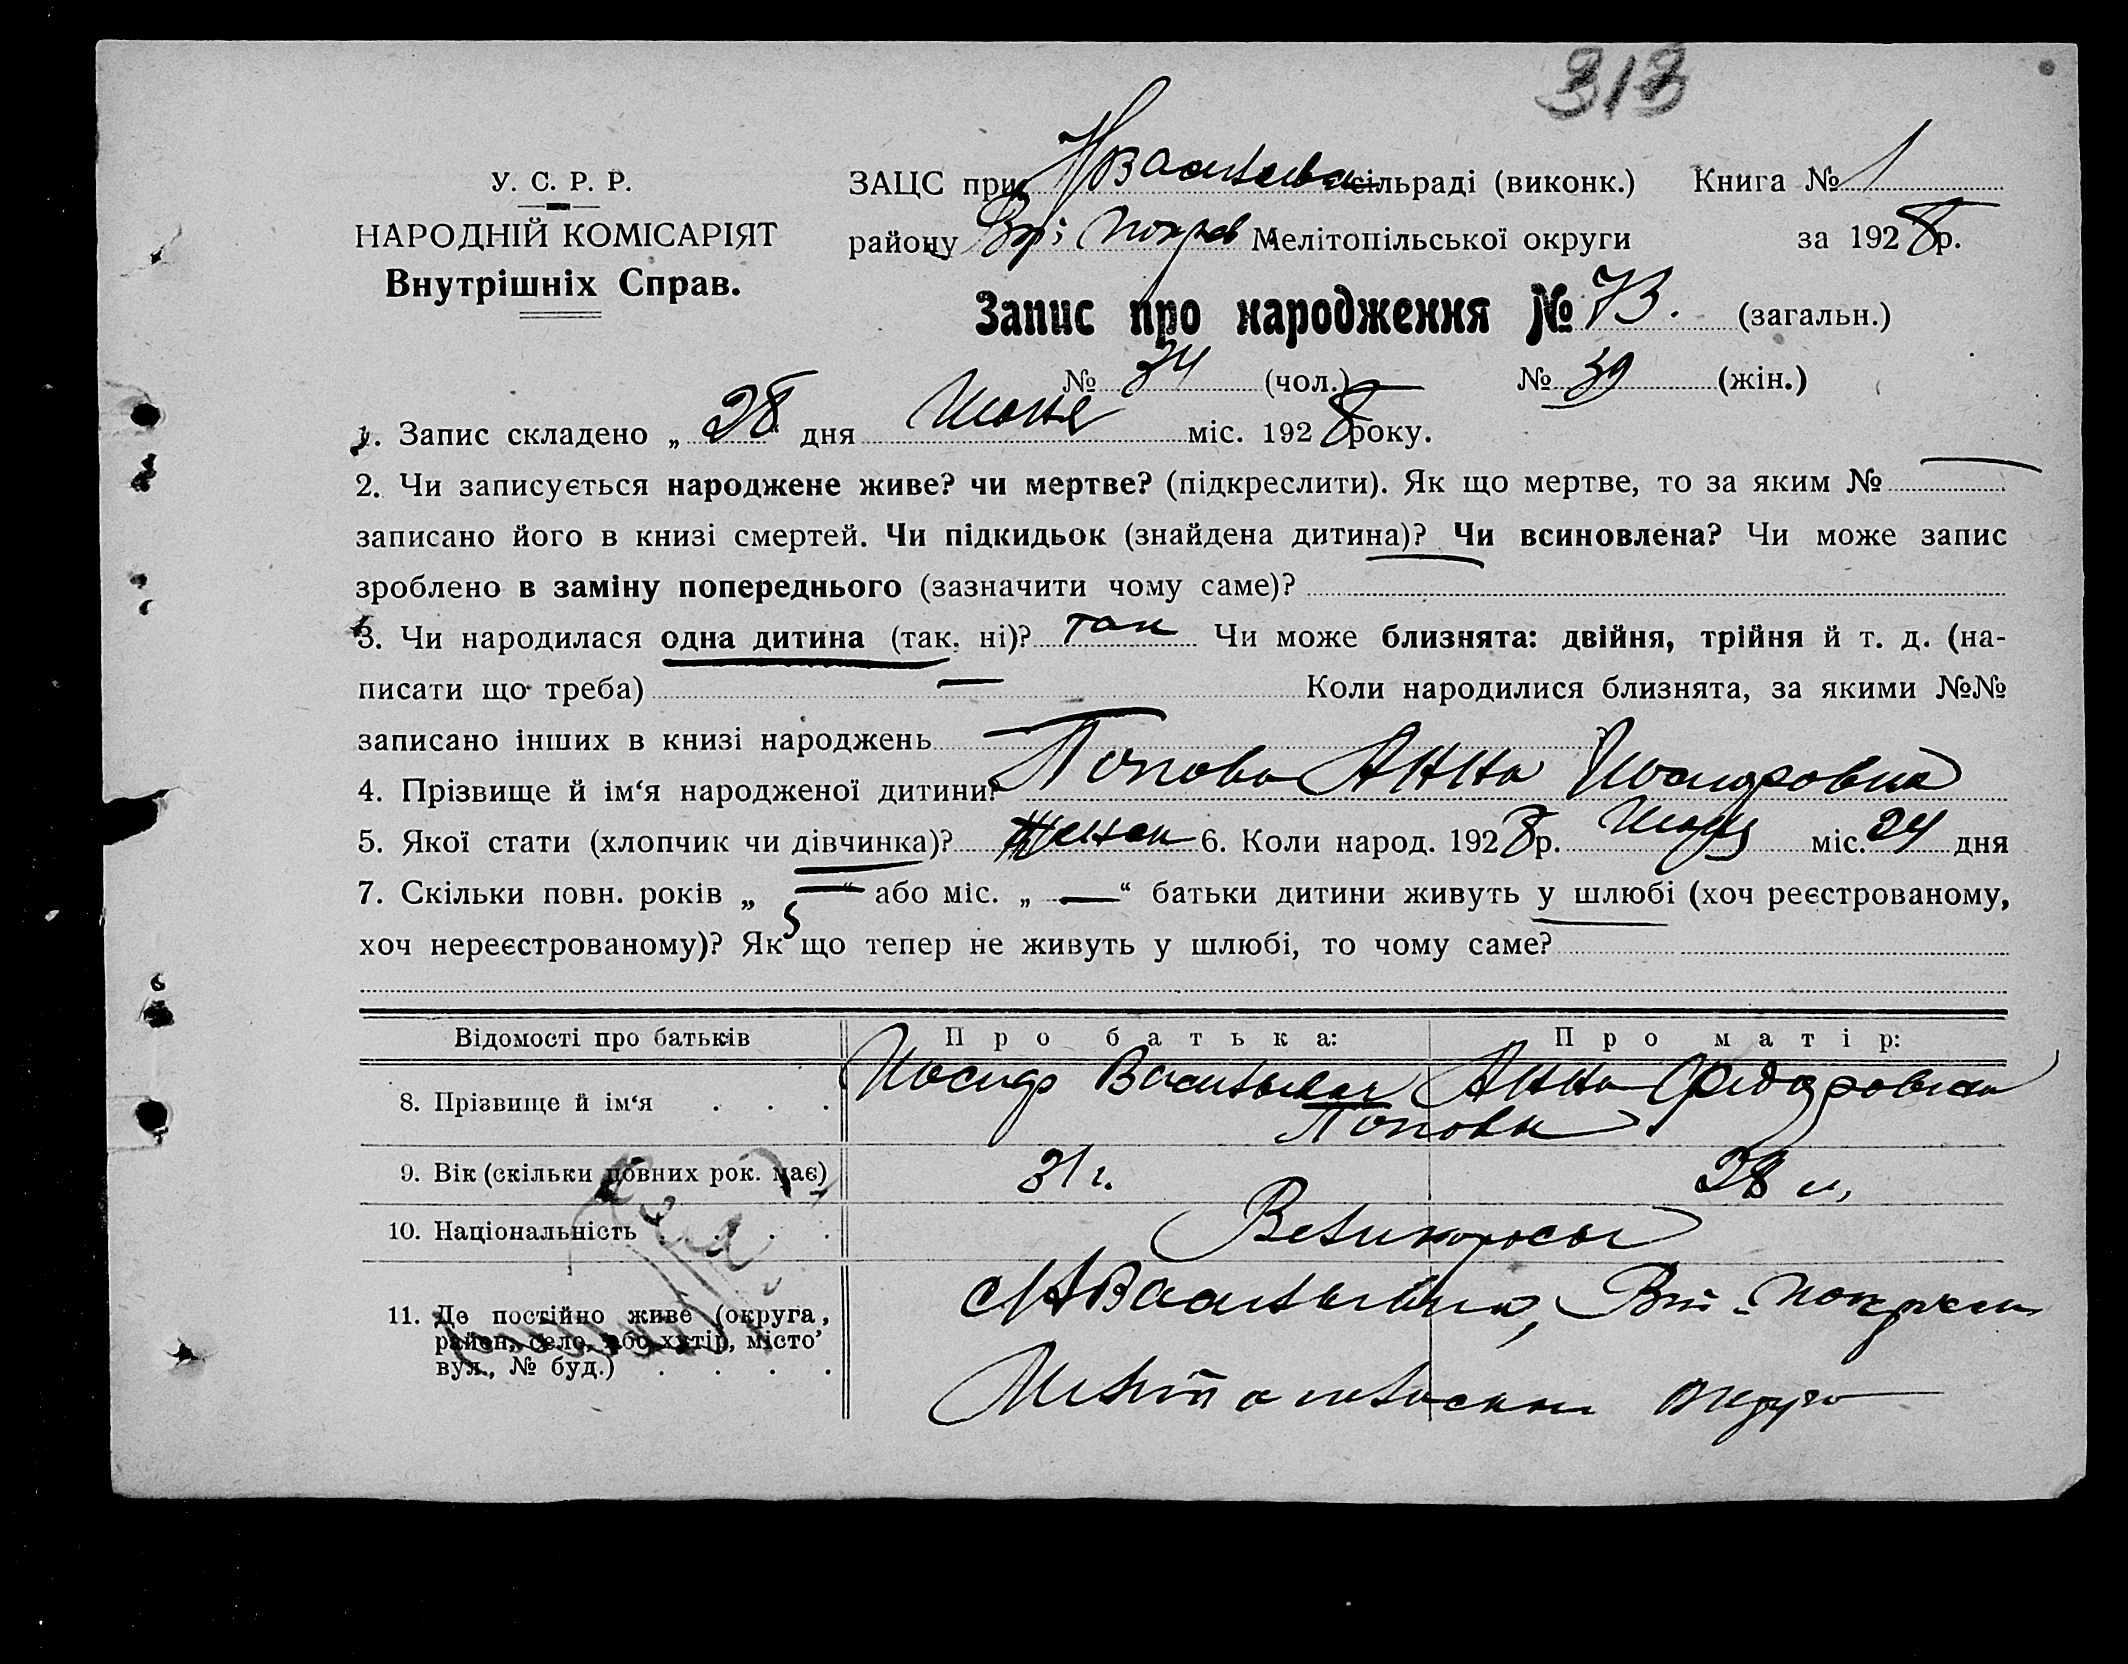 313
У. С. Р. Р.
НАРОДНІЙ КОМІСАРІЯТ
Внутрішніх Справ.
ЗАЦС при сільраді (виконк.) Книга № 1
району Мелітопільської округи за 1928 р.
Запис про народження № 73. (загальн.)
№ 34 (чол.) — № 39 (жін.)
1. Запис складено „ 28 " дня Июня міс. 1928 року.
2. Чи записується народжене живе? чи мертве? (підкреслити). Як що мертве, то за яким № —
записано його в книзі смертей. Чи підкидьок (знайдена дитина)? Чи всиновлена? Чи може запис
зроблено в заміну попереднього (зазначити чому саме)?
3. Чи народилася одна дитина (так, ні)? так Чи може близнята: двійня, трійня й т. д. (на-
писати що треба) — Коли народилися близнята, за якими №№
записано інших в книзі народжень —
4. Прізвище й ім‘я народженої дитини? Попова Анна Иосифовна
5. Якої стати (хлопчик чи дівчинка)? Женск 6. Коли народ. 1928 р. Июня міс. 24 дня
7. Скільки повн. років „ — “ або міс. „ — “ батьки дитини живуть у шлюбі (хоч реєстрованому,
5
хоч нереєстрованому)? Як що тепер не живуть у шлюбі, то чому саме?
Відомості про батьків Про батька: Про матір:
8. Прізвище й ім‘я . . . Иосиф Васильевич Анна Федоровна
Поповы
9. Вік (скільки повних рок. має) 31 г. 28 л.
10. Національність . . . Великоросы
11. Де постійно живе (округа,
район, село, або хутір, місто’
вул., № буд.) . . . .
с Н Васильевка,
Мелитопольский округ